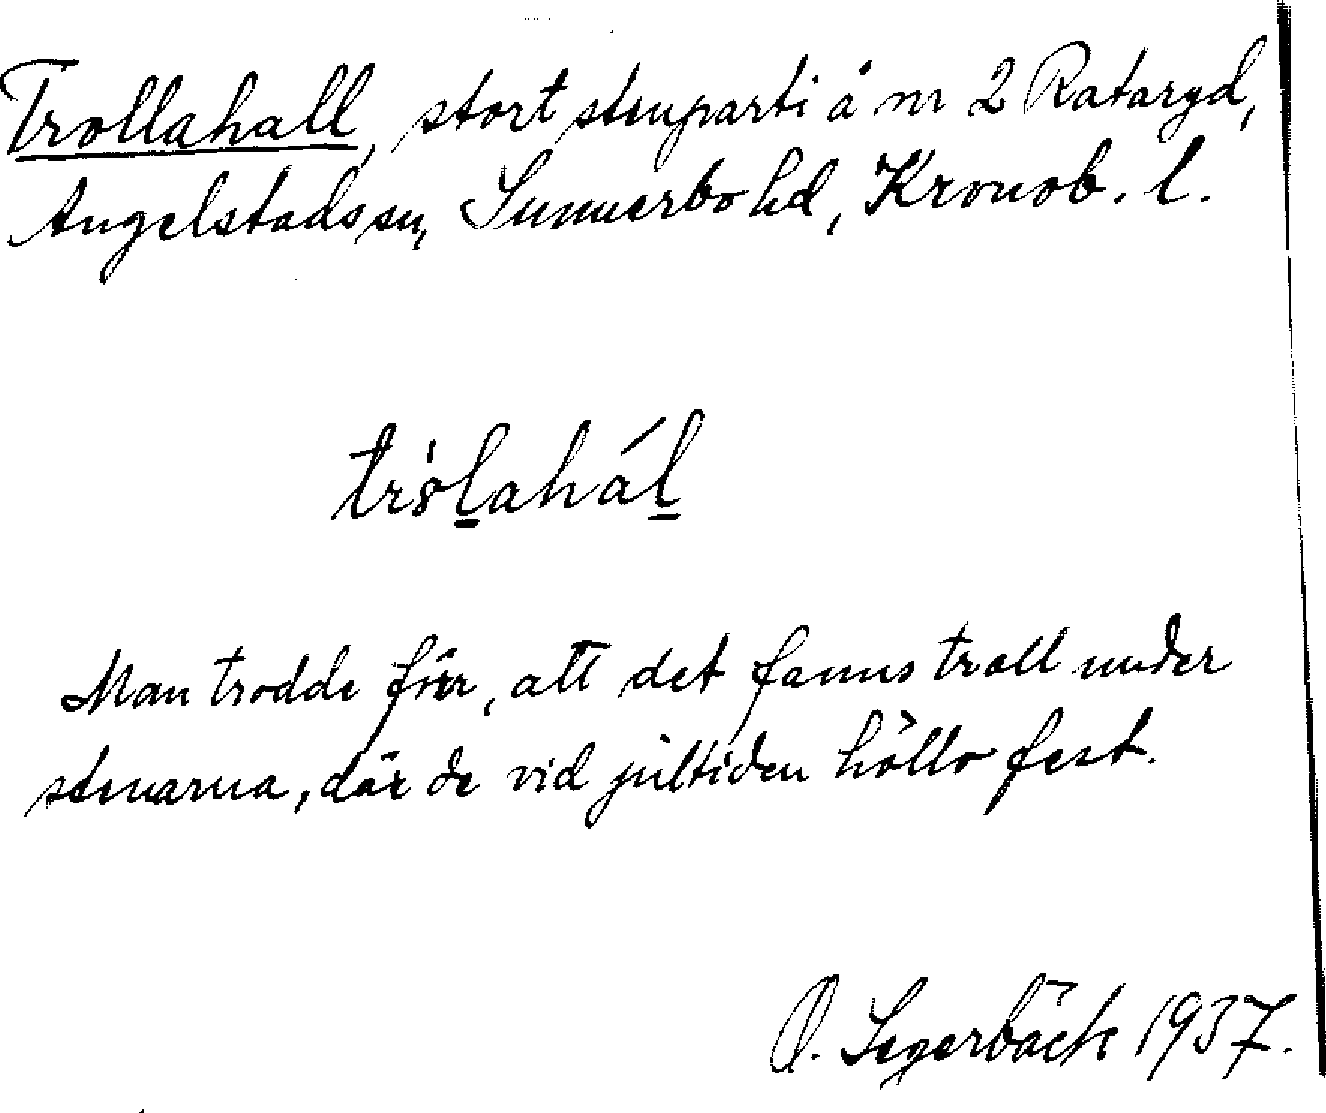 Trollahall, stort stenparti å nr 2 Rataryd,
Angelstads sn, Sunnerbo hd, Kronob. l.
trὸl̲ahál̲
Man trodde förr, att det fanns troll under
stenarna, där de vid jultiden höllo fest.
O. Segerbäck 1937.